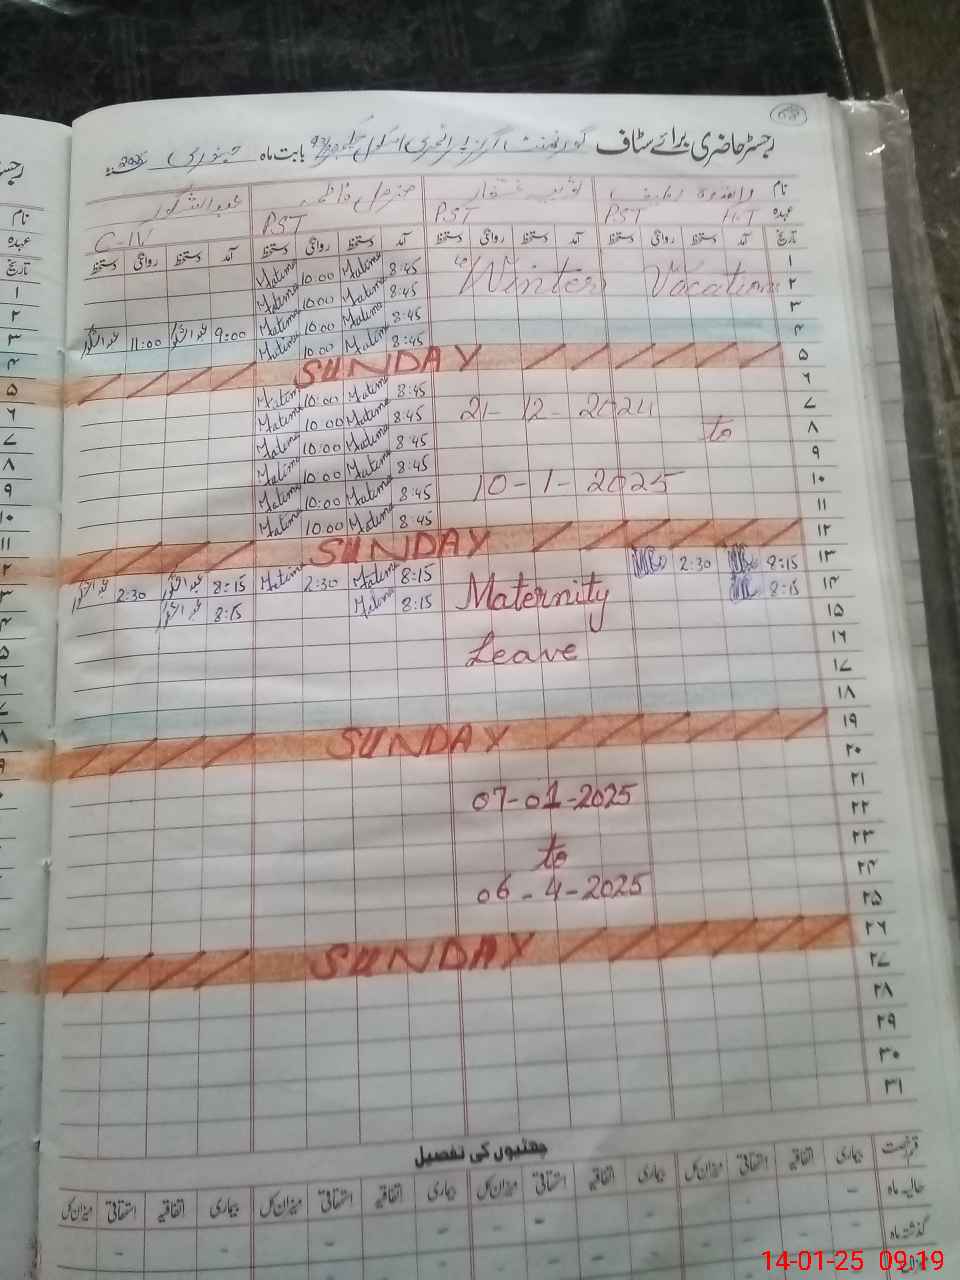 رجسٹر حاضری برائے سٹاف گورنمنٹ گرلز پرائمری سکول بابت ماہ جنوری 2025
نام
عہدہ HT PST PST PST C-IV
تاریخ آمد دستخط روانگی دستخط آمد دستخط روانگی دستخط آمد دستخط روانگی دستخط آمد دستخط روانگی دستخط
۱ 8:45 Fatima 10:00 Fatima
۲ Winter Vocation 8:45 Fatima 10:00 Fatima
۳ 8:45 Fatima 10:00 Fatima 9:00 عبدالشکور 11:00 عبدالشکور
۴ 8:45 Fatima 10:00 Fatima
۵ SUNDAY
۶ 8:45 Fatima 10:00 Fatima
۷ 21-12-2024 8:45 Fatima 10:00 Fatima
۸ to 8:45 Fatima 10:00 Fatima
۹ 8:45 Fatima 10:00 Fatima
۱۰ 10-1-2025 8:45 Fatima 10:00 Fatima
۱۱ 8:45 Fatima 10:00 Fatima
۱۲ SUNDAY
۱۳ 8:15 2:30 8:15 Fatima 2:30 Fatima 8:15 عبدالشکور 2:30 عبدالشکور
۱۴ 8:15 Maternity 8:15 Fatima 8:15 عبدالشکور
۱۵
۱۶ Leave
۱۷
۱۸
۱۹ SUNDAY
۲۰
۲۱ 07-01-2025
۲۲
۲۳ to
۲۴ 06-4-2025
۲۵
۲۶ SUNDAY
۲۷
۲۸
۲۹
۳۰
۳۱
چھٹیوں کی تفصیل
قسم رخصت بیماری اتفاقیہ استحقاقی میزان کل بیماری اتفاقیہ استحقاقی میزان کل بیماری اتفاقیہ استحقاقی میزان کل بیماری اتفاقیہ استحقاقی میزان کل
حالیہ ماہ -
گذشتہ ماہ - - - -
14-01-25 09:19